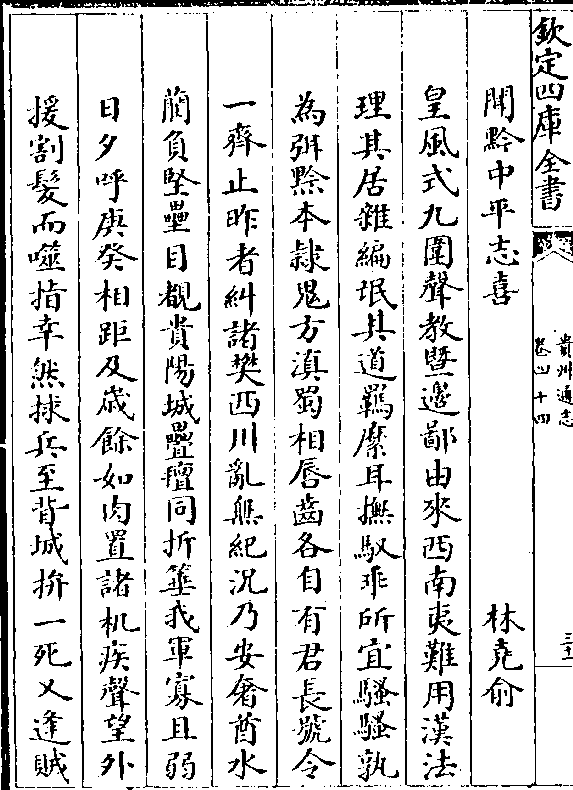 欽定四庫全書
貴州通志
卷四十四
三十一
聞黔中平志喜
林堯俞
皇風式九圍聲教暨邊鄙由來西南夷難用漢法
理其居雜編氓其道羈縻耳撫馭乖所宜騷騷孰
為弭黔本隷鬼方滇蜀相唇齒各自有君長號令
一齊止昨者糾諸樊西川亂無紀況乃安奢酋水
藺負堅壘目覩貴陽城疊羶同折箠我軍寡且弱
日夕呼庚癸相距及歲餘如肉置諸机疾聲望外
援割髮而噬指幸然捄兵至背城拚一死乂逢賊